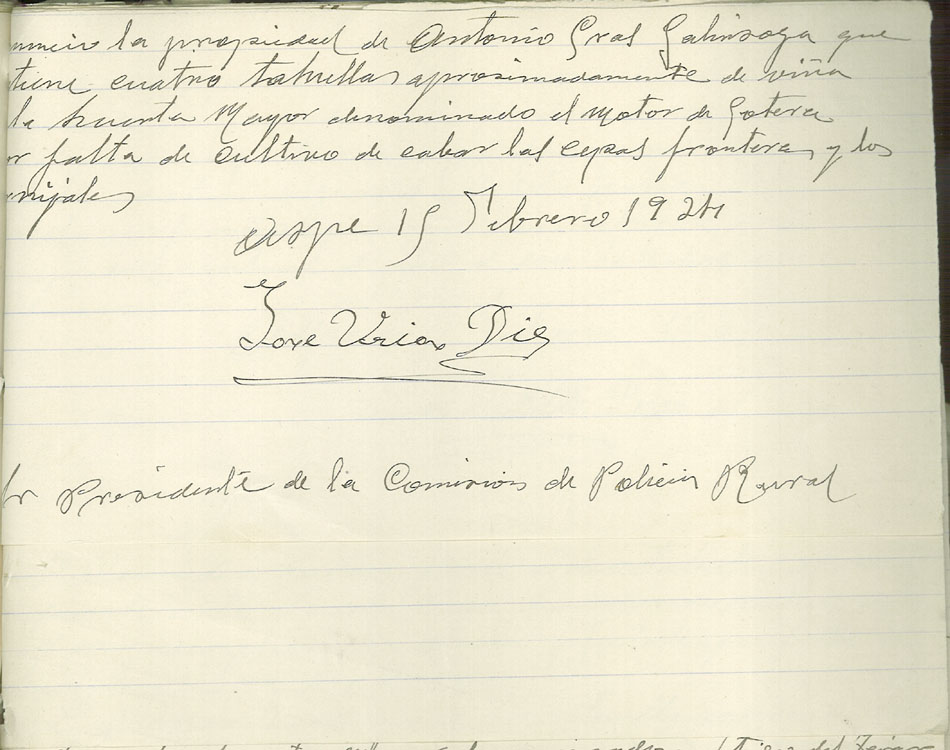 la propiedad de Antonio Gras Galinsoga que
tiene cuatro tahullas aproximadamente de viña
la huerta Mayor denominado el Motor de Gotera
r falta de cultivo de cabar las cepas fronteras y los
nijales
Aspe 15 Febrero 1924
Jose Urios Die
Sr Presidente de la Comision de Policia Rural